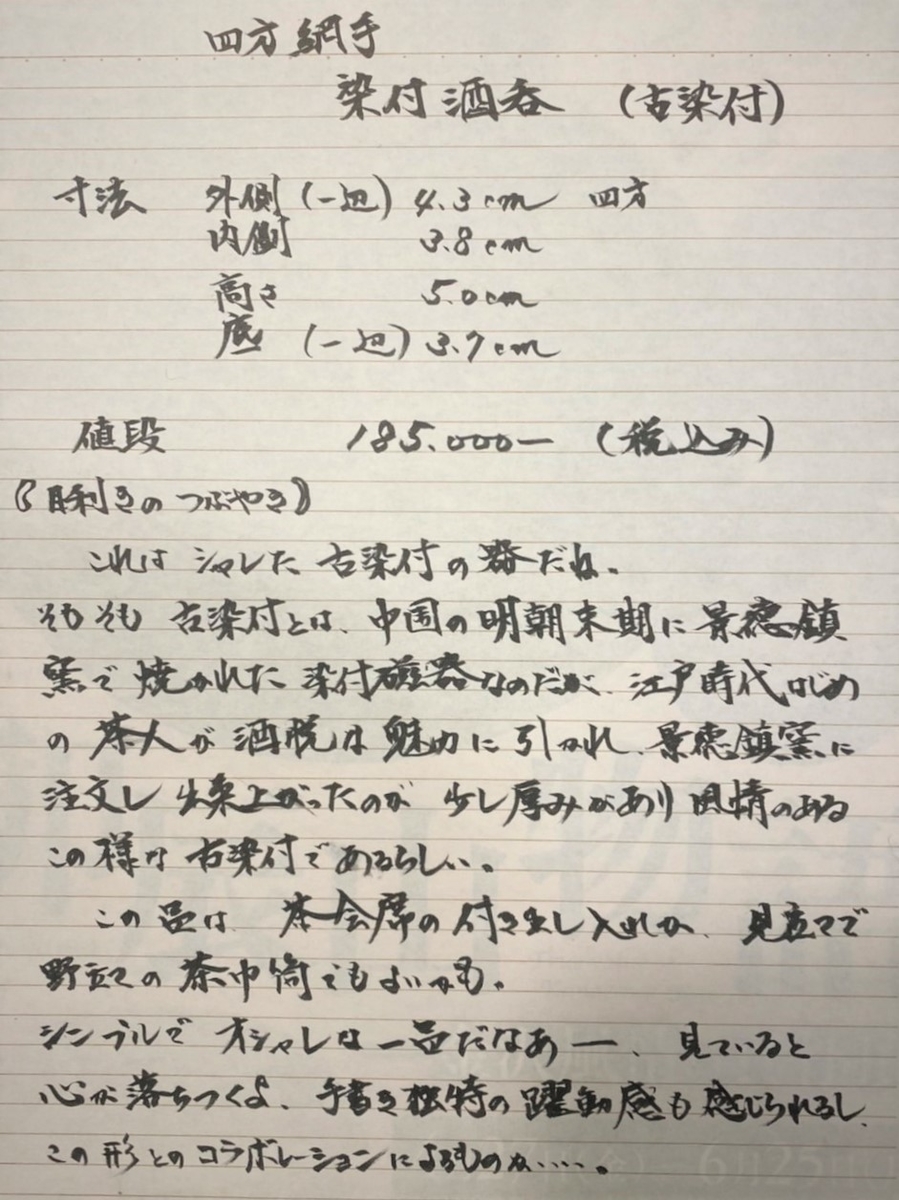 四方 網手
染付 酒呑 (古染付)
寸法 外側 (一辺) 4.3cm 四方
内側 3.8cm
高さ 5.0cm
底 (一辺) 3.7cm
値段 185.000ー (税込み)
《目利きの つぶやき》
これは シャレた 古染付の 器だね。
そもそも 古染付とは、中国の 明朝末期に 景徳鎮
窯で 焼かれた 染付磁器なのだが、江戸時代はじめ
の 茶人が 酒脱な 魅力に 引かれ、景徳鎮窯に
注文し 出来上がったのが 少し厚みがあり 風情のある
この様な 古染付であるらしい。
この品は、茶会席の 付き出し入れか、見立てで
野立ての 茶巾筒でもよいかも。
シンプルで オシャレな 一品だなあー、見ていると
心が 落ちつくよ、手書き独特の 躍動感も 感じられるし、
この形との コラボレーションによるものか……。